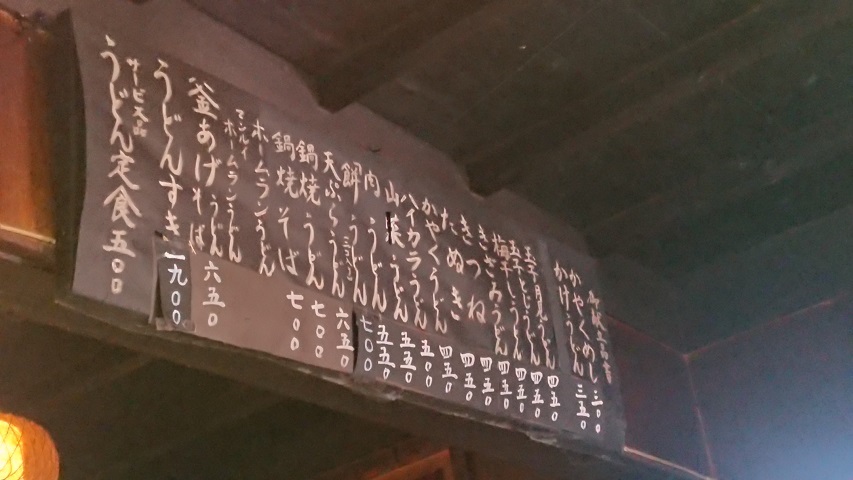 かやくめし 三〇〇
かけうどん 三五〇
玉子月見うどん 四五〇
玉子とじうどん 四五〇
梅干しうどん 四五〇
きざみうどん 四五〇
きつね 四五〇
たぬき 四五〇
かやくうどん 五〇〇
ハイカラうどん 五五〇
山菜うどん 五五〇
肉うどん 七〇〇
餅うどん
天ぷらうどん 六五〇
鍋焼うどん 七〇〇
鍋焼そば 七〇〇
ホームランうどん
マンルイ
ホームランうどん
釜あげうどん
そば 六五〇
うどんすき 一九〇〇
サービス品
うどん定食 五〇〇